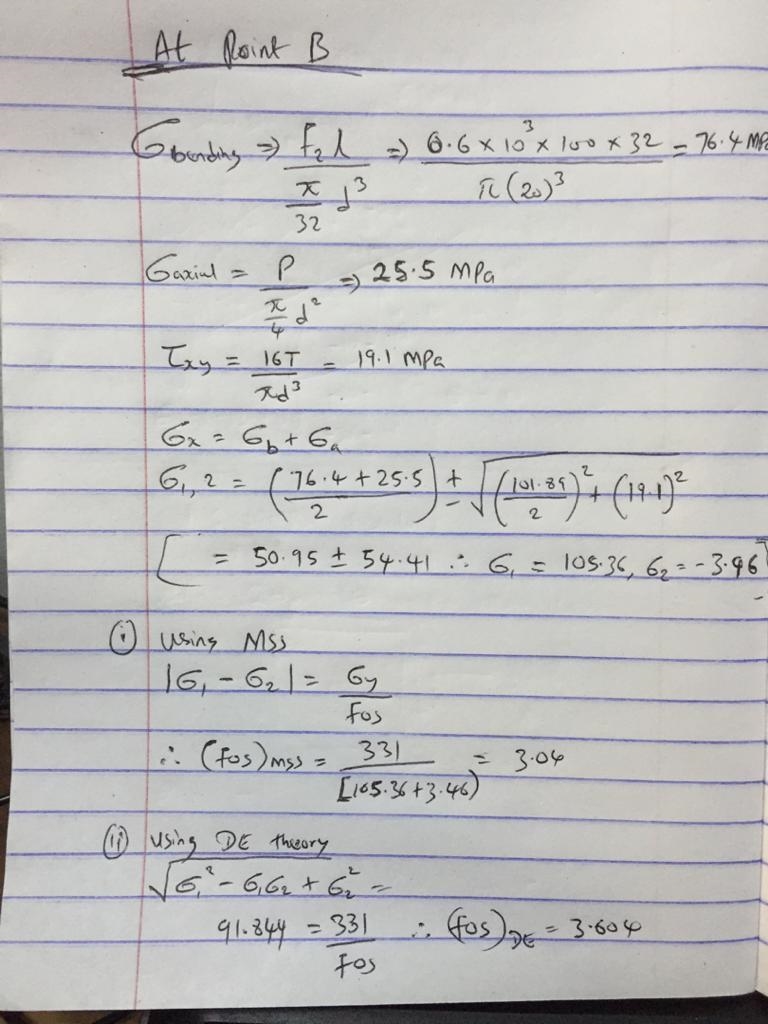 At Point B
σbending ⇒ F₂l / (π/32 d³) ⇒ 0.6 × 10³ × 100 × 32 / π(20)³ = 76.4 MPa
σaxial = P / (π/4 d²) ⇒ 25.5 MPa
τxy = 16T / πd³ = 19.1 MPa
σx = σb + σa
σ1,2 = ((76.4 + 25.5) / 2) ± √((101.89 / 2)² + (19.1)²)
[ = 50.95 ± 54.41 ∴ σ₁ = 105.36, σ₂ = -3.46 ]
(i) Using MSS
|σ₁ - σ₂| = σy / fos
∴ (fos)MSS = 331 / [105.36 + 3.46) = 3.04
(ii) Using DE theory
√σ₁² - σ₁σ₂ + σ₂² =
91.844 = 331 / fos ∴ (fos)DE = 3.604